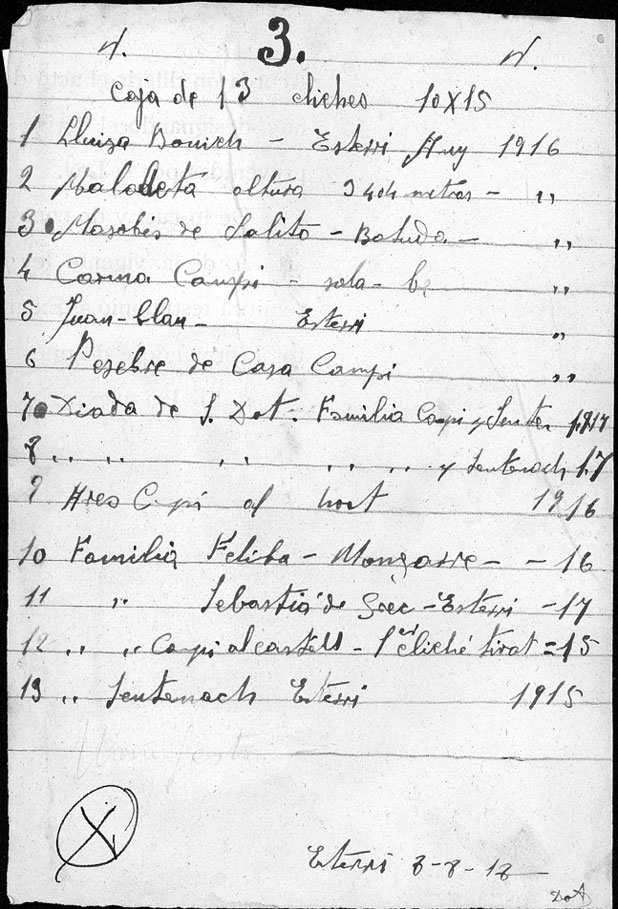 N. 3. N.
Caja de 13 cliches 10X15
1 Lluiza Bonich - Esterri Any 1916
2 Maladeta altura 3404 metros - ,,
3 Masobés de Salito - Batuda - ,,
4 Carma Campi - sola - ,,
5 Juan-Blan - Esterri ,,
6 Pesebre de Casa Campi ,,
7 Diada de S. Dot. Familia Campi y 1917
8 ,, ,, ,, ,, ,, y Sentenach 17
9 Campi al hort 1916
10 Familia Feliba - Mongarre - - 16
11 ,, Sebastiá de - Esterri - 17
12 ,, ,, Campi al castell - 1er cliché tirat = 15
13 ,, Sentenach Esterri 1915
Esterri 8-8-18
Dot